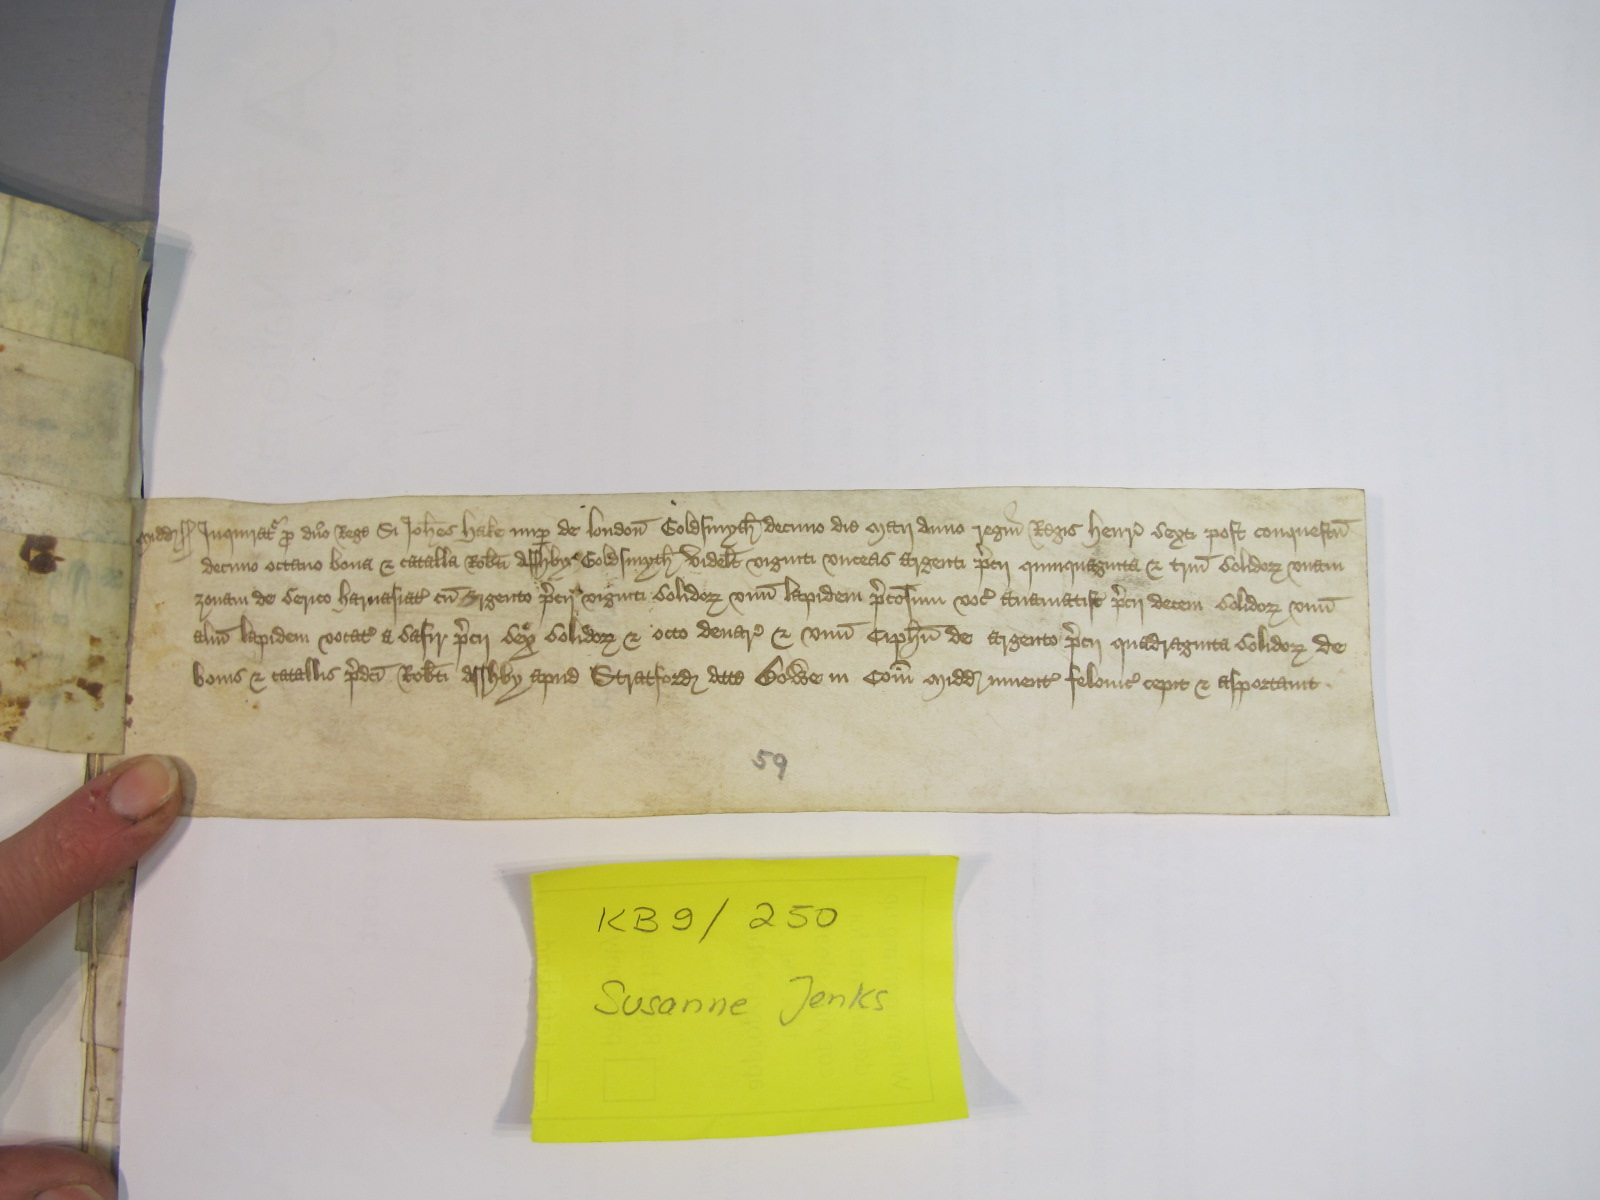 Midd ss Inquirat' p dno Rege Si Johes Hale nup de london Goldsmyth decimo die Maii Anno regni Regis Henr' Sexti post conquestu
decimo octavo bona & catalla Robti Asshby Goldsmyth videlt viginti unceas argenti p'cii quinquaginta & triu solidor unam
zonam de Serico harnasiat' cu Argento p'cii viginti solidor unu lapidem p'cosum voc' amatist p'cii decem solidor unu
aliu lapidem vocat' a Safir p'cii Sex solidor & octo denar' & unu Ciphu de argento p'cii quadraginta solidor de
bonis & catallis p'dci Robti Asshby apud Stratford atte Bowe in Com Midd invent' felonic' cepit & asportavit
59
KB9/ 250
Susanne Jenks